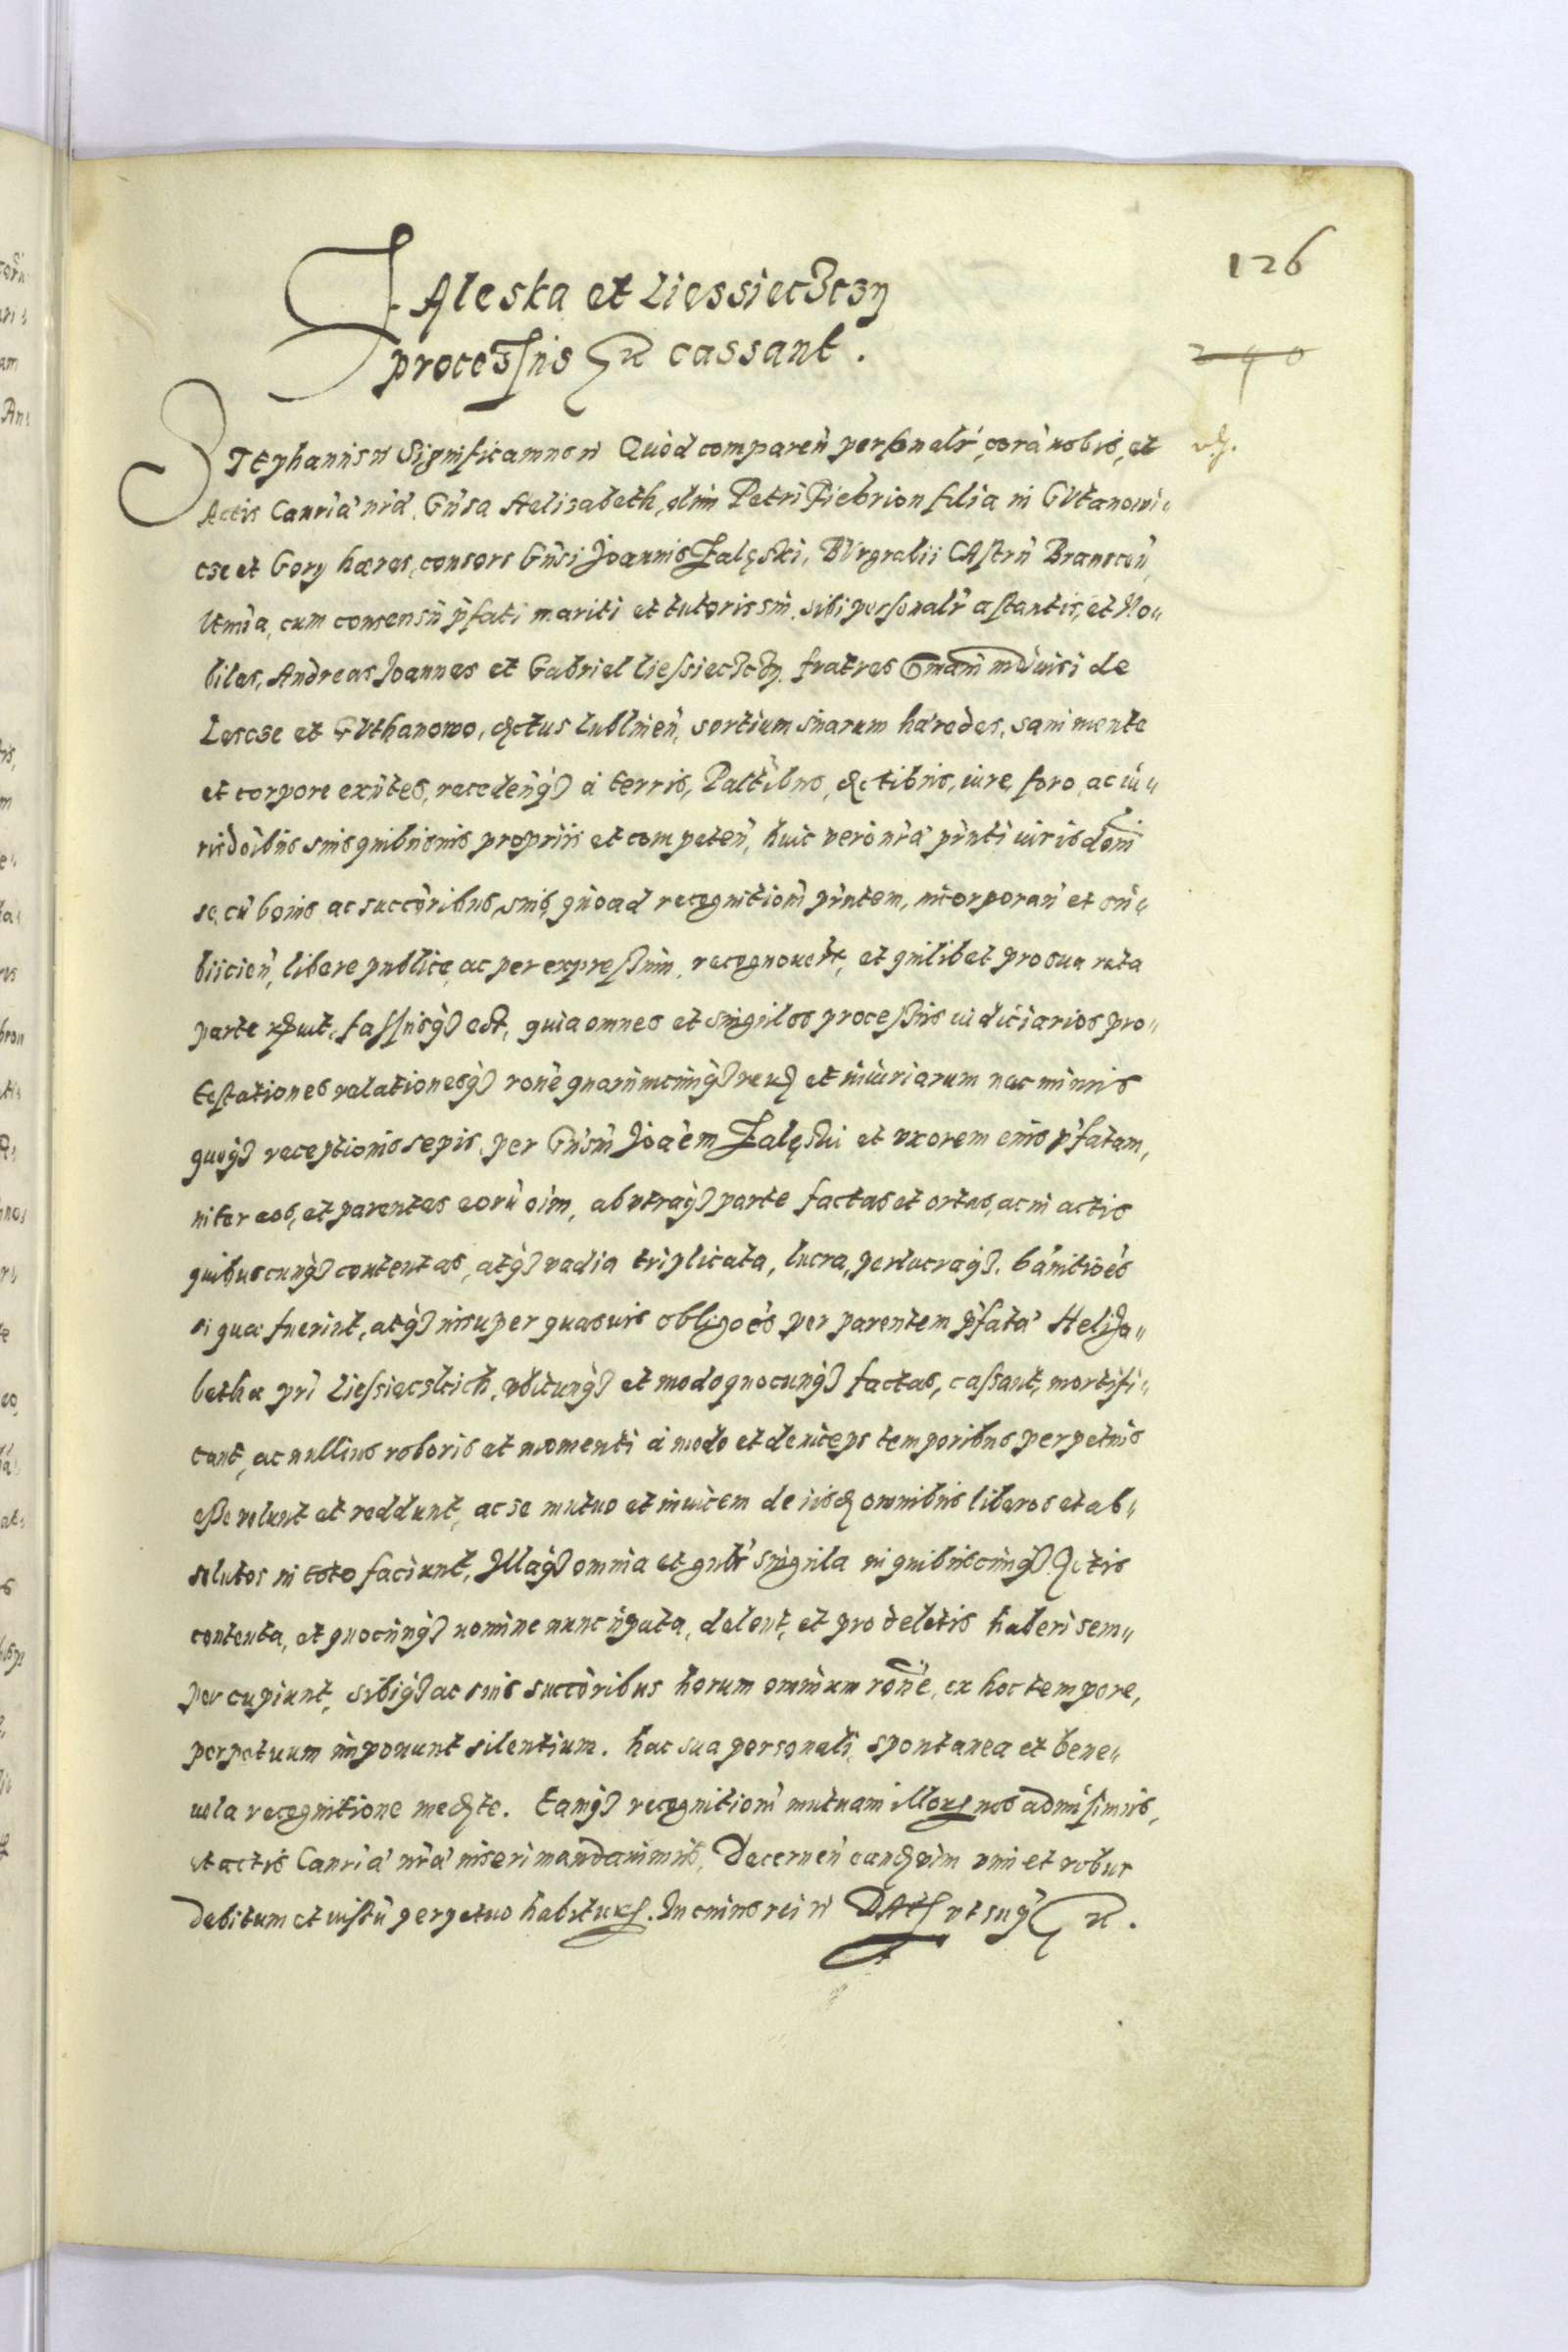 126
Zaleska et Liessiecżczy
processus etc cassant.
240
Stephanus etc Significamus etc Quòd compareñ personalr̃, corã nobis, et
Actis Canriã nr̃ã, Gñsa Helizabeth, olim Petri filia in Gutanowi„
cze et Gory hæres, consors Gñsi Joannis Zalęski, Burgrabii Castrñ Branscēn,
cum consensu p̃fati mariti et tutoris sui, sibi personalr̃ astantis, et No„
biles, Andreas Joannes et Gabriel Liessiecżczy fratres indivisi de
Lescze et Guthanowo, lublineñ, sortium suarum hæredes, sani mente
et corpore exñtes, recedeñq3 à terris, Palt̃ibus, iure, foro, ac iu„
risdoĩbus suis quibusuis propriis et competeñ, huic verò nr̃ã pñti iurisdoni
se, cũ bonis ac succõribus suis, quoad recognitionẽ pñtem, incorporañ et sũ„
biicieñ, liberè publicè, ac per expressum, recognouert, et quilibet pro sua rata
parte fassusq3 est, quia omnes et singulos processus iudiciarios pro„
testationes relationesq3 rõne quarumcunq3 rerũ et iniuriarum nec minus
quoq3 receptionis sepis, per Gñsũ Joãẽm Zalęski et uxorem eius p̃fatam,
inter eos, et parentes eorũ oĩm, ab utraq3 parte factas et ortas, ac in actis
quibuscunq3 contentas, atq3 vadia triplicata, lucra, perlucraq3, bãnitioẽs
si quæ fuerint, atq3 insuper quasuis obligoẽs per parentem p̃fatã Heliza„
bethæ pri Liessieczkich, ubicunq3 et modo quocunq3 factas, cassant, mortifi„
cant, ac nullius roboris et momenti à modo et deinceps temporibus perpetuis
esse volunt et reddunt, ac se mutuo et inuicem de iisdem omnibus liberos et ab„
solutos in toto faciunt, Illaq3 omnia et qulr̃ singula in quibuscunq3 Actis
contenta, et quocunq3 nomine nuncupata, delent, et pro deletis haberi sem„
per cupiunt, sibiq3 ac suis succõribus horum omnium rõne, ex hoc tempore,
perpetuum imponunt silentium. hac sua personali, spontanea et bene„
uola recognitione medte. Eamq3 recognitionẽ mutuam illorum nos admisimus,
et actis Canriã nr̃ã inseri mandauimus, Decerneñ eandem vim et robur
debitum et iustũ perpetuo habiturum. In cuius rei etc Datum ut supr̃ etc.